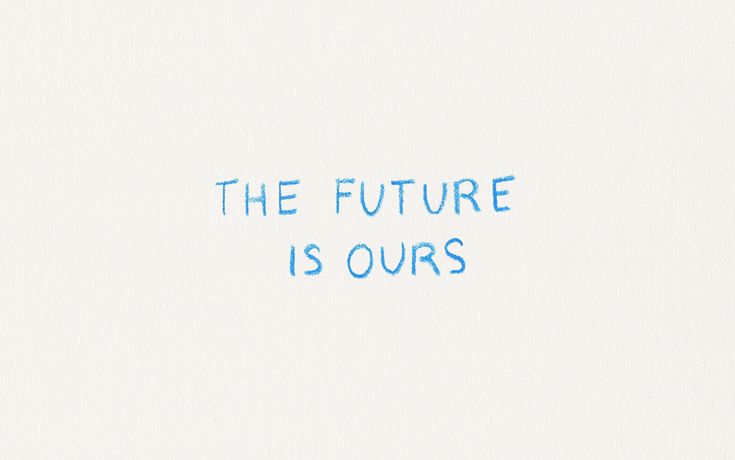 THE FUTURE
IS OURS